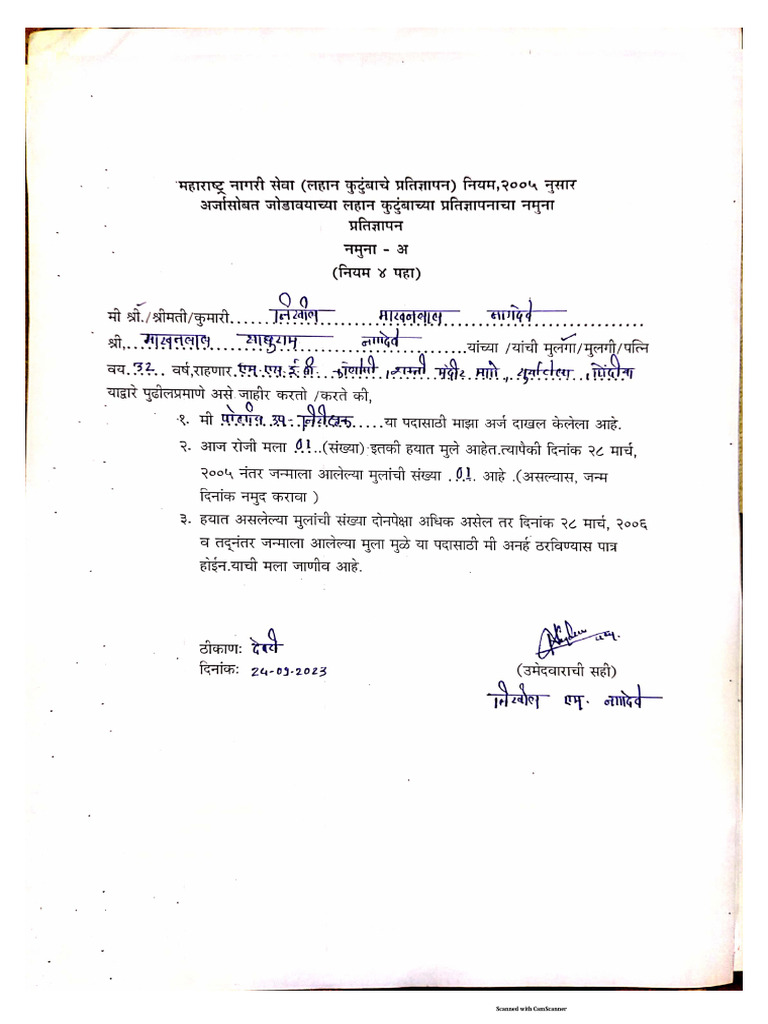 महाराष्ट्र नागरी सेवा (लहान कुटुंबाचे प्रतिज्ञापन) नियम,२००५ नुसार
अर्जासोबत जोडावयाच्या लहान कुटुंबाच्या प्रतिज्ञापनाचा नमुना
प्रतिज्ञापन
नमुना - अ
(नियम ४ पहा)
मी श्री./श्रीमती/कुमारी......निखील माखनलाल नागदेवे......
श्री,...माखनलाल साधुराम नागदेवे......यांच्या /यांची मुलगा/मुलगी/पत्नि
वय.32.. वर्ष,राहणार.एम.एस.ई.बी कॉलोनी, मंदीर मागे, सुर्याटोला, गोंदीया
याद्वारे पुढीलप्रमाणे असे जाहीर करतो /करते की,
१. मी पोलीस उप-निरीक्षक.....या पदासाठी माझा अर्ज दाखल केलेला आहे.
२. आज रोजी मला 01...(संख्या) इतकी हयात मुले आहेत.त्यापैकी दिनांक २८ मार्च,
२००५ नंतर जन्माला आलेल्या मुलांची संख्या .01. आहे .(असल्यास, जन्म
दिनांक नमुद करावा )
३. हयात असलेल्या मुलांची संख्या दोनपेक्षा अधिक असेल तर दिनांक २८ मार्च, २००६
व तद्नंतर जन्माला आलेल्या मुला मुळे या पदासाठी मी अनर्ह ठरविण्यास पात्र
होईन.याची मला जाणीव आहे.
ठीकाण: 
दिनांक: 24-09-2023
(उमेदवाराची सही)
निखील एम. नागदेवे
Scanned with CamScanner